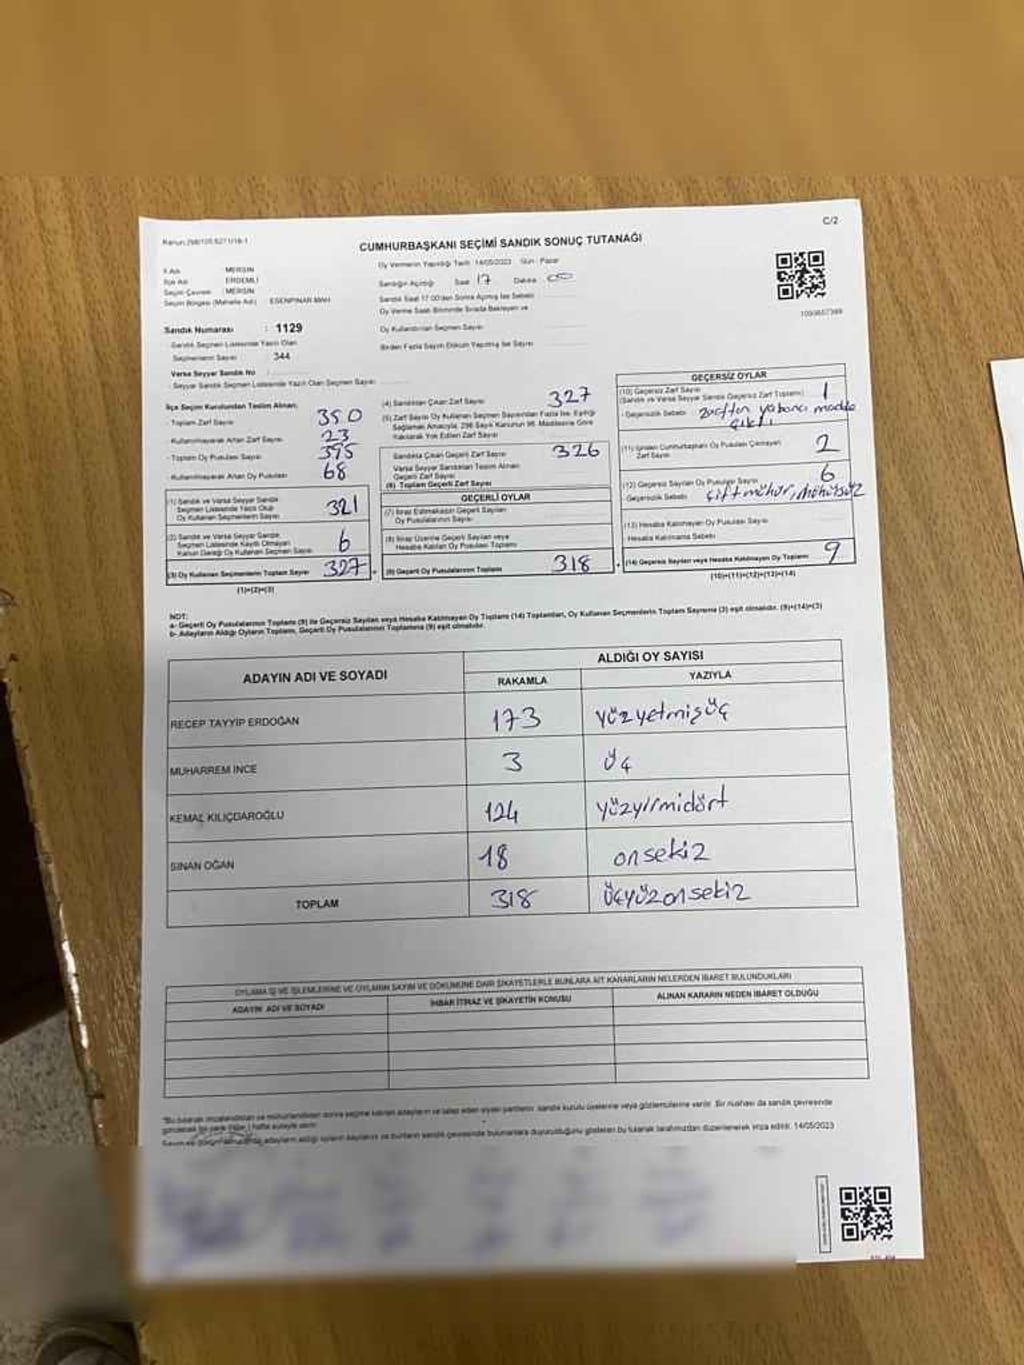 Kanun:298/105 6271/16-1
C/2
CUMHURBAŞKANI SEÇİMİ SANDIK SONUÇ TUTANAĞI
İl Adı : MERSİN
İlçe Adı : ERDEMLİ
Seçim Çevresi : MERSİN
Seçim Bölgesi (Mahalle Adı) : ESENPINAR MAH.
Oy Vermenin Yapıldığı Tarih : 14/05/2023 Gün : Pazar
Sandığın Açıldığı Saat 17 Dakika 00
Sandık Saat 17:00'den Sonra Açılmış İse Sebebi
Oy Verme Saati Bitiminde Sırada Bekleyen ve
Oy Kullandırılan Seçmen Sayısı
Birden Fazla Sayım Döküm Yapılmış İse Sayısı
Sandık Numarası : 1129
Sandık Seçmen Listesinde Yazılı Olan
Seçmenlerin Sayısı : 344
Varsa Seyyar Sandık No :
Seyyar Sandık Seçmen Listesinde Yazılı Olan Seçmen Sayısı
İlçe Seçim Kurulundan Teslim Alınan;
- Toplam Zarf Sayısı 350
- Kullanılmayarak Artan Zarf Sayısı 23
- Toplam Oy Pusulası Sayısı 395
- Kullanılmayarak Artan Oy Pusulası 68
(1) Sandık ve Varsa Seyyar Sandık
Seçmen Listesinde Yazılı Olup
Oy Kullanan Seçmenlerin Sayısı 321
(2) Sandık ve Varsa Seyyar Sandık
Seçmen Listesinde Kayıtlı Olmayan
Kanun Gereği Oy Kullanan Seçmen Sayısı 6
(3) Oy Kullanan Seçmenlerin Toplam Sayısı 327
(1)+(2)=(3)
(4) Sandıktan Çıkan Zarf Sayısı 327
(5) Zarf Sayısı Oy Kullanan Seçmen Sayısından Fazla İse, Eşitliği
Sağlamak Amacıyla, 298 Sayılı Kanunun 98. Maddesine Göre
Yakılarak Yok Edilen Zarf Sayısı
Sandıkta Çıkan Geçerli Zarf Sayısı 326
Varsa Seyyar Sandıktan Teslim Alınan
Geçerli Zarf Sayısı
(6) Toplam Geçerli Zarf Sayısı
GEÇERLİ OYLAR
(7) İtiraz Edilmeksizin Geçerli Sayılan
Oy Pusulalarının Sayısı
(8) İtiraz Üzerine Geçerli Sayılan veya
Hesaba Katılan Oy Pusulası Toplamı
(9) Geçerli Oy Pusulalarının Toplamı 318
GEÇERSİZ OYLAR
(10) Geçersiz Zarf Sayısı
(Sandık ve Varsa Seyyar Sandık Geçersiz Zarf Toplamı) 1
- Geçersizlik Sebebi zarftan yabancı madde
çıktı
(11) İçinden Cumhurbaşkanı Oy Pusulası Çıkmayan
Zarf Sayısı 2
(12) Geçersiz Sayılan Oy Pusulası Sayısı 6
- Geçersizlik Sebebi çift mühür, mühürsüz
(13) Hesaba Katılmayan Oy Pusulası Sayısı
Hesaba Katılmama Sebebi
(14) Geçersiz Sayılan veya Hesaba Katılmayan Oy Toplamı 9
(10)+(11)+(12)+(13)=(14)
NOT:
a- Geçerli Oy Pusulalarının Toplamı (9) ile Geçersiz Sayılan veya Hesaba Katılmayan Oy Toplamı (14) Toplamları, Oy Kullanan Seçmenlerin Toplam Sayısına (3) eşit olmalıdır. (9)+(14)=(3)
b- Adayların Aldığı Oyların Toplamı, Geçerli Oy Pusulalarının Toplamına (9) eşit olmalıdır.
ADAYIN ADI VE SOYADI
ALDIĞI OY SAYISI
RAKAMLA YAZIYLA
RECEP TAYYİP ERDOĞAN 173 yüzyetmişüç
MUHARREM İNCE 3 üç
KEMAL KILIÇDAROĞLU 124 yüzyirmidört
SİNAN OĞAN 18 onsekiz
TOPLAM 318 üçyüzonsekiz
OYLAMA İŞ VE İŞLEMLERİNE VE OYLARIN SAYIM VE DÖKÜMÜNE DAİR ŞİKAYETLERLE BUNLARA AİT KARARLARIN NELERDEN İBARET BULUNDUKLARI
ADAYIN ADI VE SOYADI
İHBAR İTİRAZ VE ŞİKAYETİN KONUSU
ALINAN KARARIN NEDEN İBARET OLDUĞU